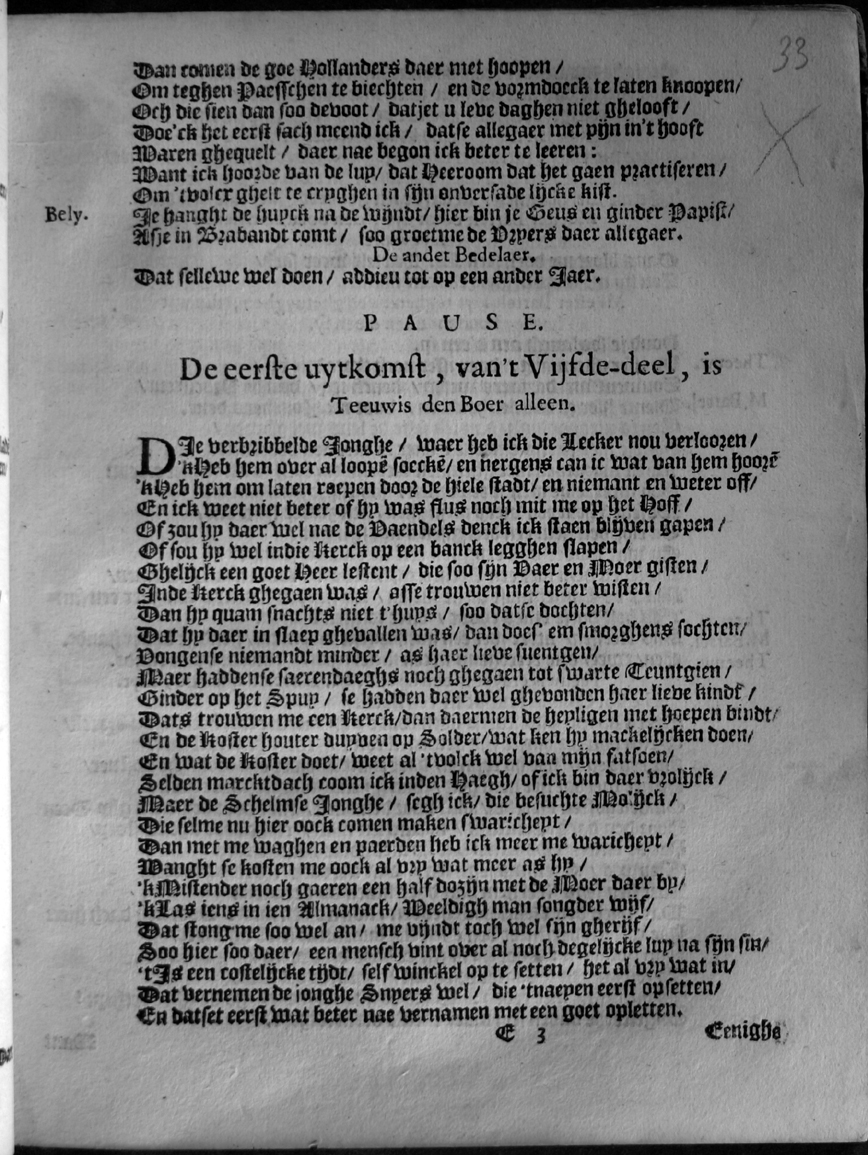 33
Dan comen de goe Hollanders daer met hoopen /
Om teghen Paesschen te biechten / en de vormdoeck te laten knoopen/
Och die sien dan soo devoot / datjet u leve daghen niet ghelooft /
Doe'ck het eerst sach meend ick / datse allegaer met pijn in't hooft
Waren ghequelt / daer nae begon ick beter te leeren :
Want ick hoorde van de luy/ dat Heeroom dat het gaen practiseren /
Om 'tvolcx ghelt te cryghen in sijn onversade lijcke kist.
Bely. Je hanght de huyck na de wijndt/ hier bin je Geus en ginder Papist/
Asje in Brabandt comt / soo groetme de Vryers daer allegaer.
De andet Bedelaer.
Dat sellewe wel doen / addieu tot op een ander Jaer.
PAUSE.
De eerste uytkomst, van't Vijfde-deel, is
Teeuwis den Boer alleen.
DJe verbribbelde Jonghe / waer heb ick die Lecker nou verlooren /
'kHeb hem over al loopẽ soeckẽ/ en nergens can ic wat van hem hoorẽ
'kHeb hem om laten roepen door de hiele stadt/ en niemant en weter off/
En ick weet niet beter of hy was flus noch mit me op het Hoff /
Of zou hy daer wel nae de Vaendels denck ick staen blijven gapen /
Of sou hy wel indie Kerck op een banck legghen slapen /
Ghelijck een goet Heer lestent / die soo sijn Vaer en Moer gisten /
Inde Kerck ghegaen was / asse trouwen niet beter wisten /
Dan hy quam snachts niet t'huys / soo datse dochten/
Dat hy daer in slaep ghevallen was/ dan does' em smorghens sochten/
Vongense niemandt minder / as haer lieve suentgen/
Maer haddense saerendaeghs noch ghegaen tot swarte Teuntgien /
Ginder op het Spuy / se hadden daer wel ghevonden haer lieve kindt /
Dats trouwen me een Kerck/dan daermen de heyligen met hoepen bindt/
En de Koster houter duyven op Solder/wat ken hy mackelijcken doen/
En wat de Koster doet/ weet al 'tvolck wel van mijn fatsoen/
Selden marcktdach coom ick inden Haegh/ of ick bin daer vrolijck /
Maer de Schelmse Jonghe / segh ick/ die besuchte Mo'ijck /
Die selme nu hier oock comen maken swaricheyt /
Dan met me waghen en paerden heb ick meer me waricheyt /
Wanght se kosten me oock al vry wat meer as hy /
'kMistender noch gaeren een half dozijn met de Moer daer by/
'kLas iens in ien Almanack/ Weeldigh man songder wijf/
Dat stong me soo wel an / me vijndt toch wel sijn gherijf/
Soo hier soo daer/ een mensch vint over al noch degelijcke luy na sijn sin/
'tIs een costelijcke tijdt/ self winckel op te setten / het al vry wat in/
Dat vernemen de jonghe Snyers wel / die 'tnaepen eerst opsetten/
En datset eerst wat beter nae vernamen met een goet opletten.
E 3 Eenighe